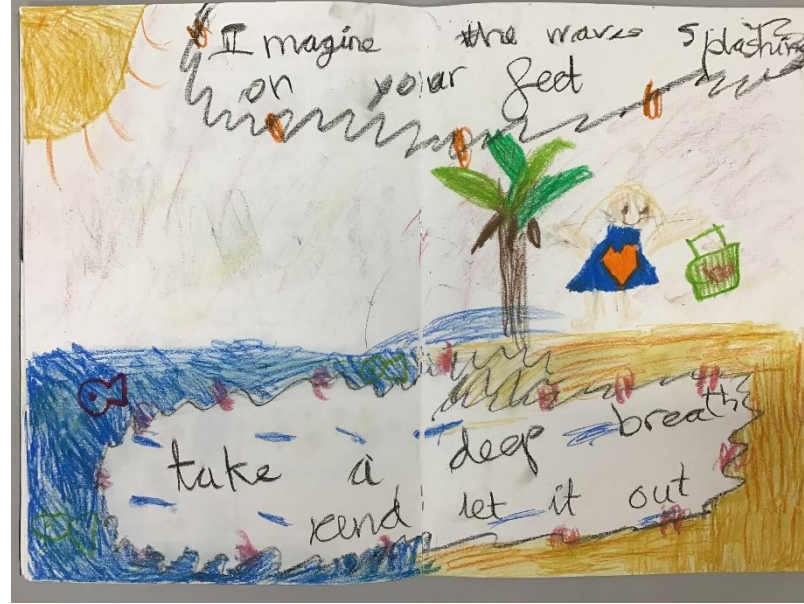 Imagine the waves splashing
on your feet
take a deep breath
and let it out